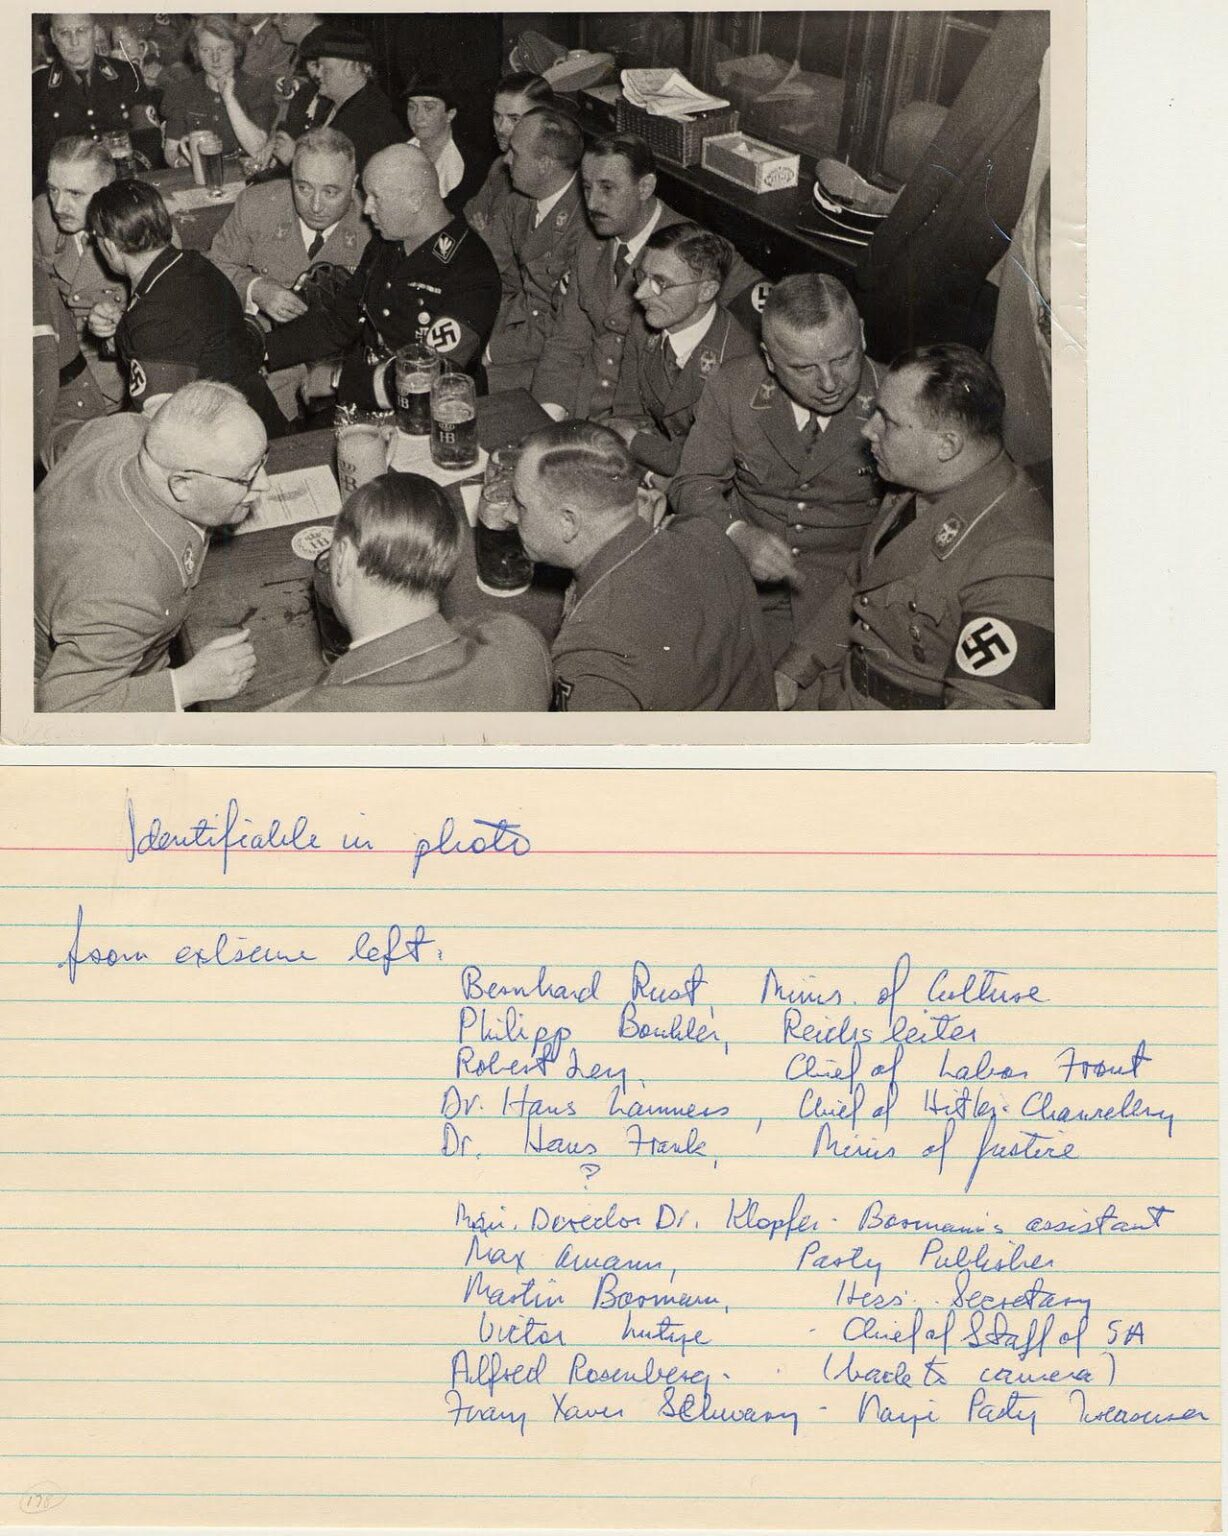 HB
HB
HB
Identifiable in photo
from extreme left:
Bernhard Rust, Minis. of Culture
Philipp Bouhler, Reichsleiter
Robert Ley, Chief of Labor Front
Dr. Hans Lammers, Chief of Hitler's Chancellery
Dr. Hans Frank, Minis of Justice
?
Min. Director Dr. Klopfer - Bormann's assistant
Max Amann, Party Publisher
Martin Bormann, Hess' Secretary
Victor Lutze - Chief of Staff of SA
Alfred Rosenberg - (back to camera)
Franz Xaver Schwarz - Nazi Party Treasurer
178